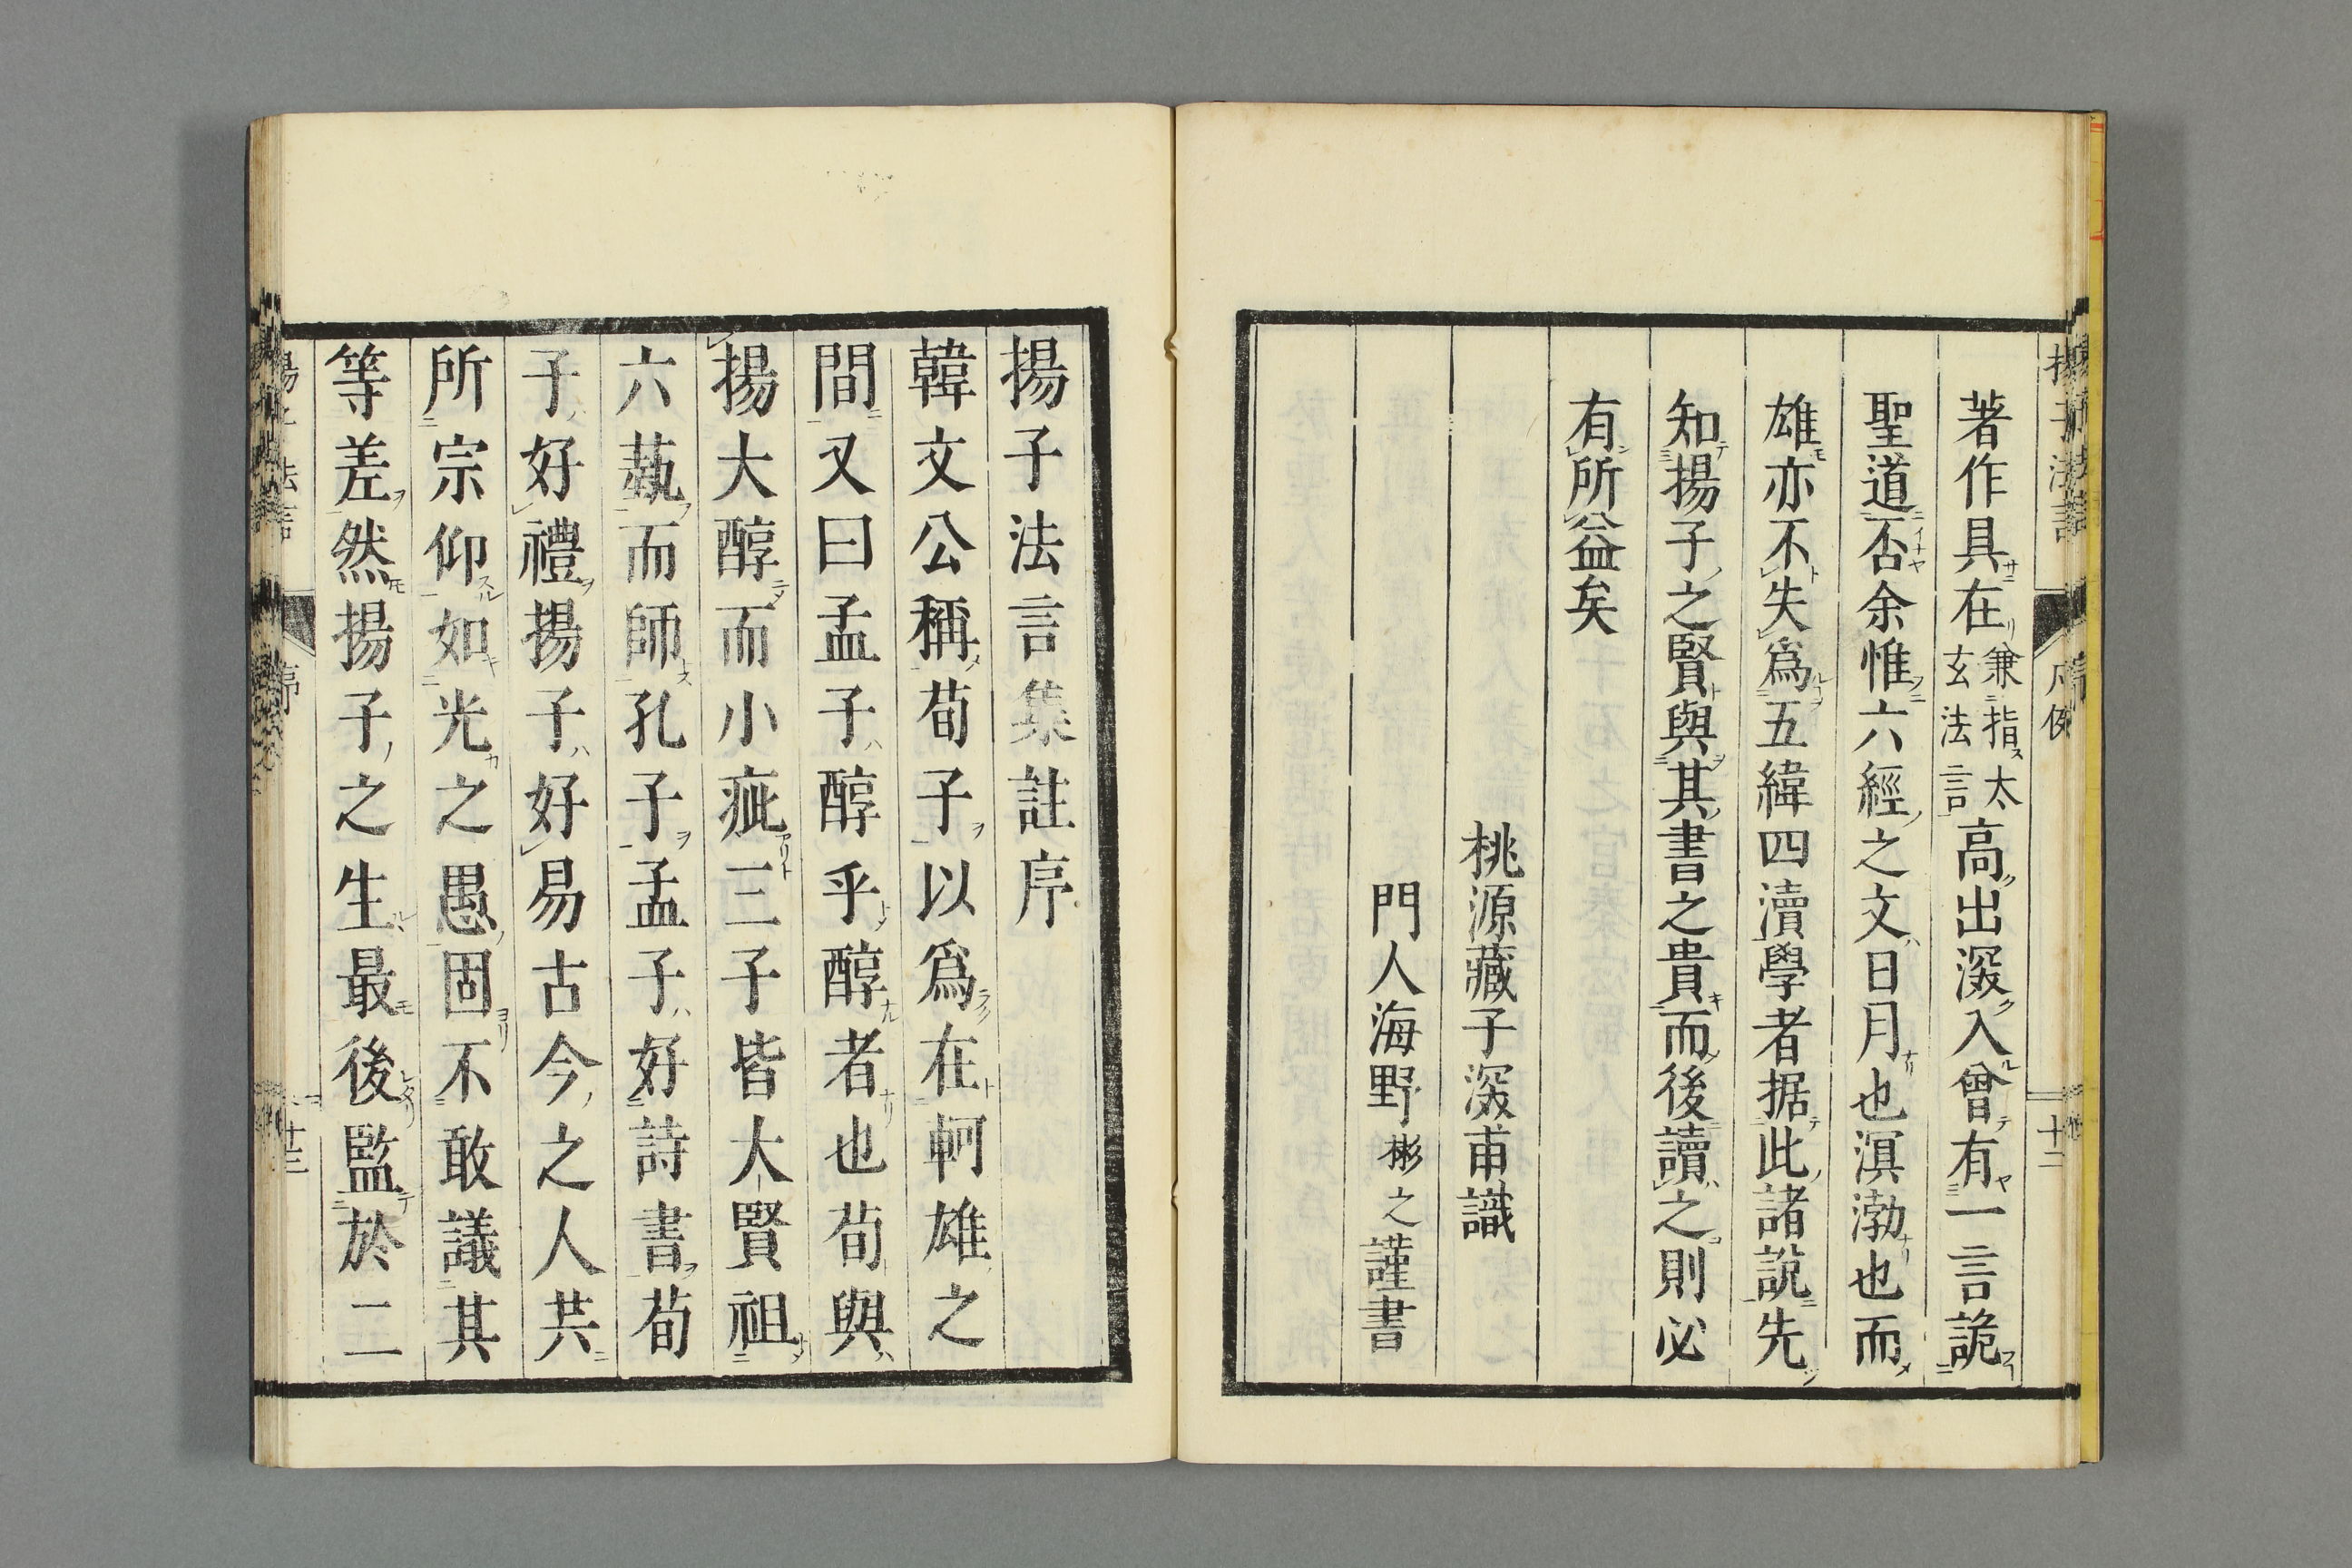 著作具在兼指太玄法言高出深入曾有一言詭
聖道否余惟六經之文日月也溟渤也而
雄亦不失爲五緯四瀆學者据此諸說先
知揚子之賢與其書之貴而後讀之則必
有所益矣
桃源藏子深甫識
門人海野彬之謹書
揚子法言
凡例
十二
揚子法言集註序
韓文公稱荀子以爲在軻雄之
間又曰孟子醇乎醇者也荀與
揚大醇而小疵三子皆大賢祖
六蓺而師孔子孟子好詩書荀
子好禮揚子好易古今之人共
所宗仰如光之愚固不敢議其
等差然揚子之生最後監於二
揚子法言
序
十三